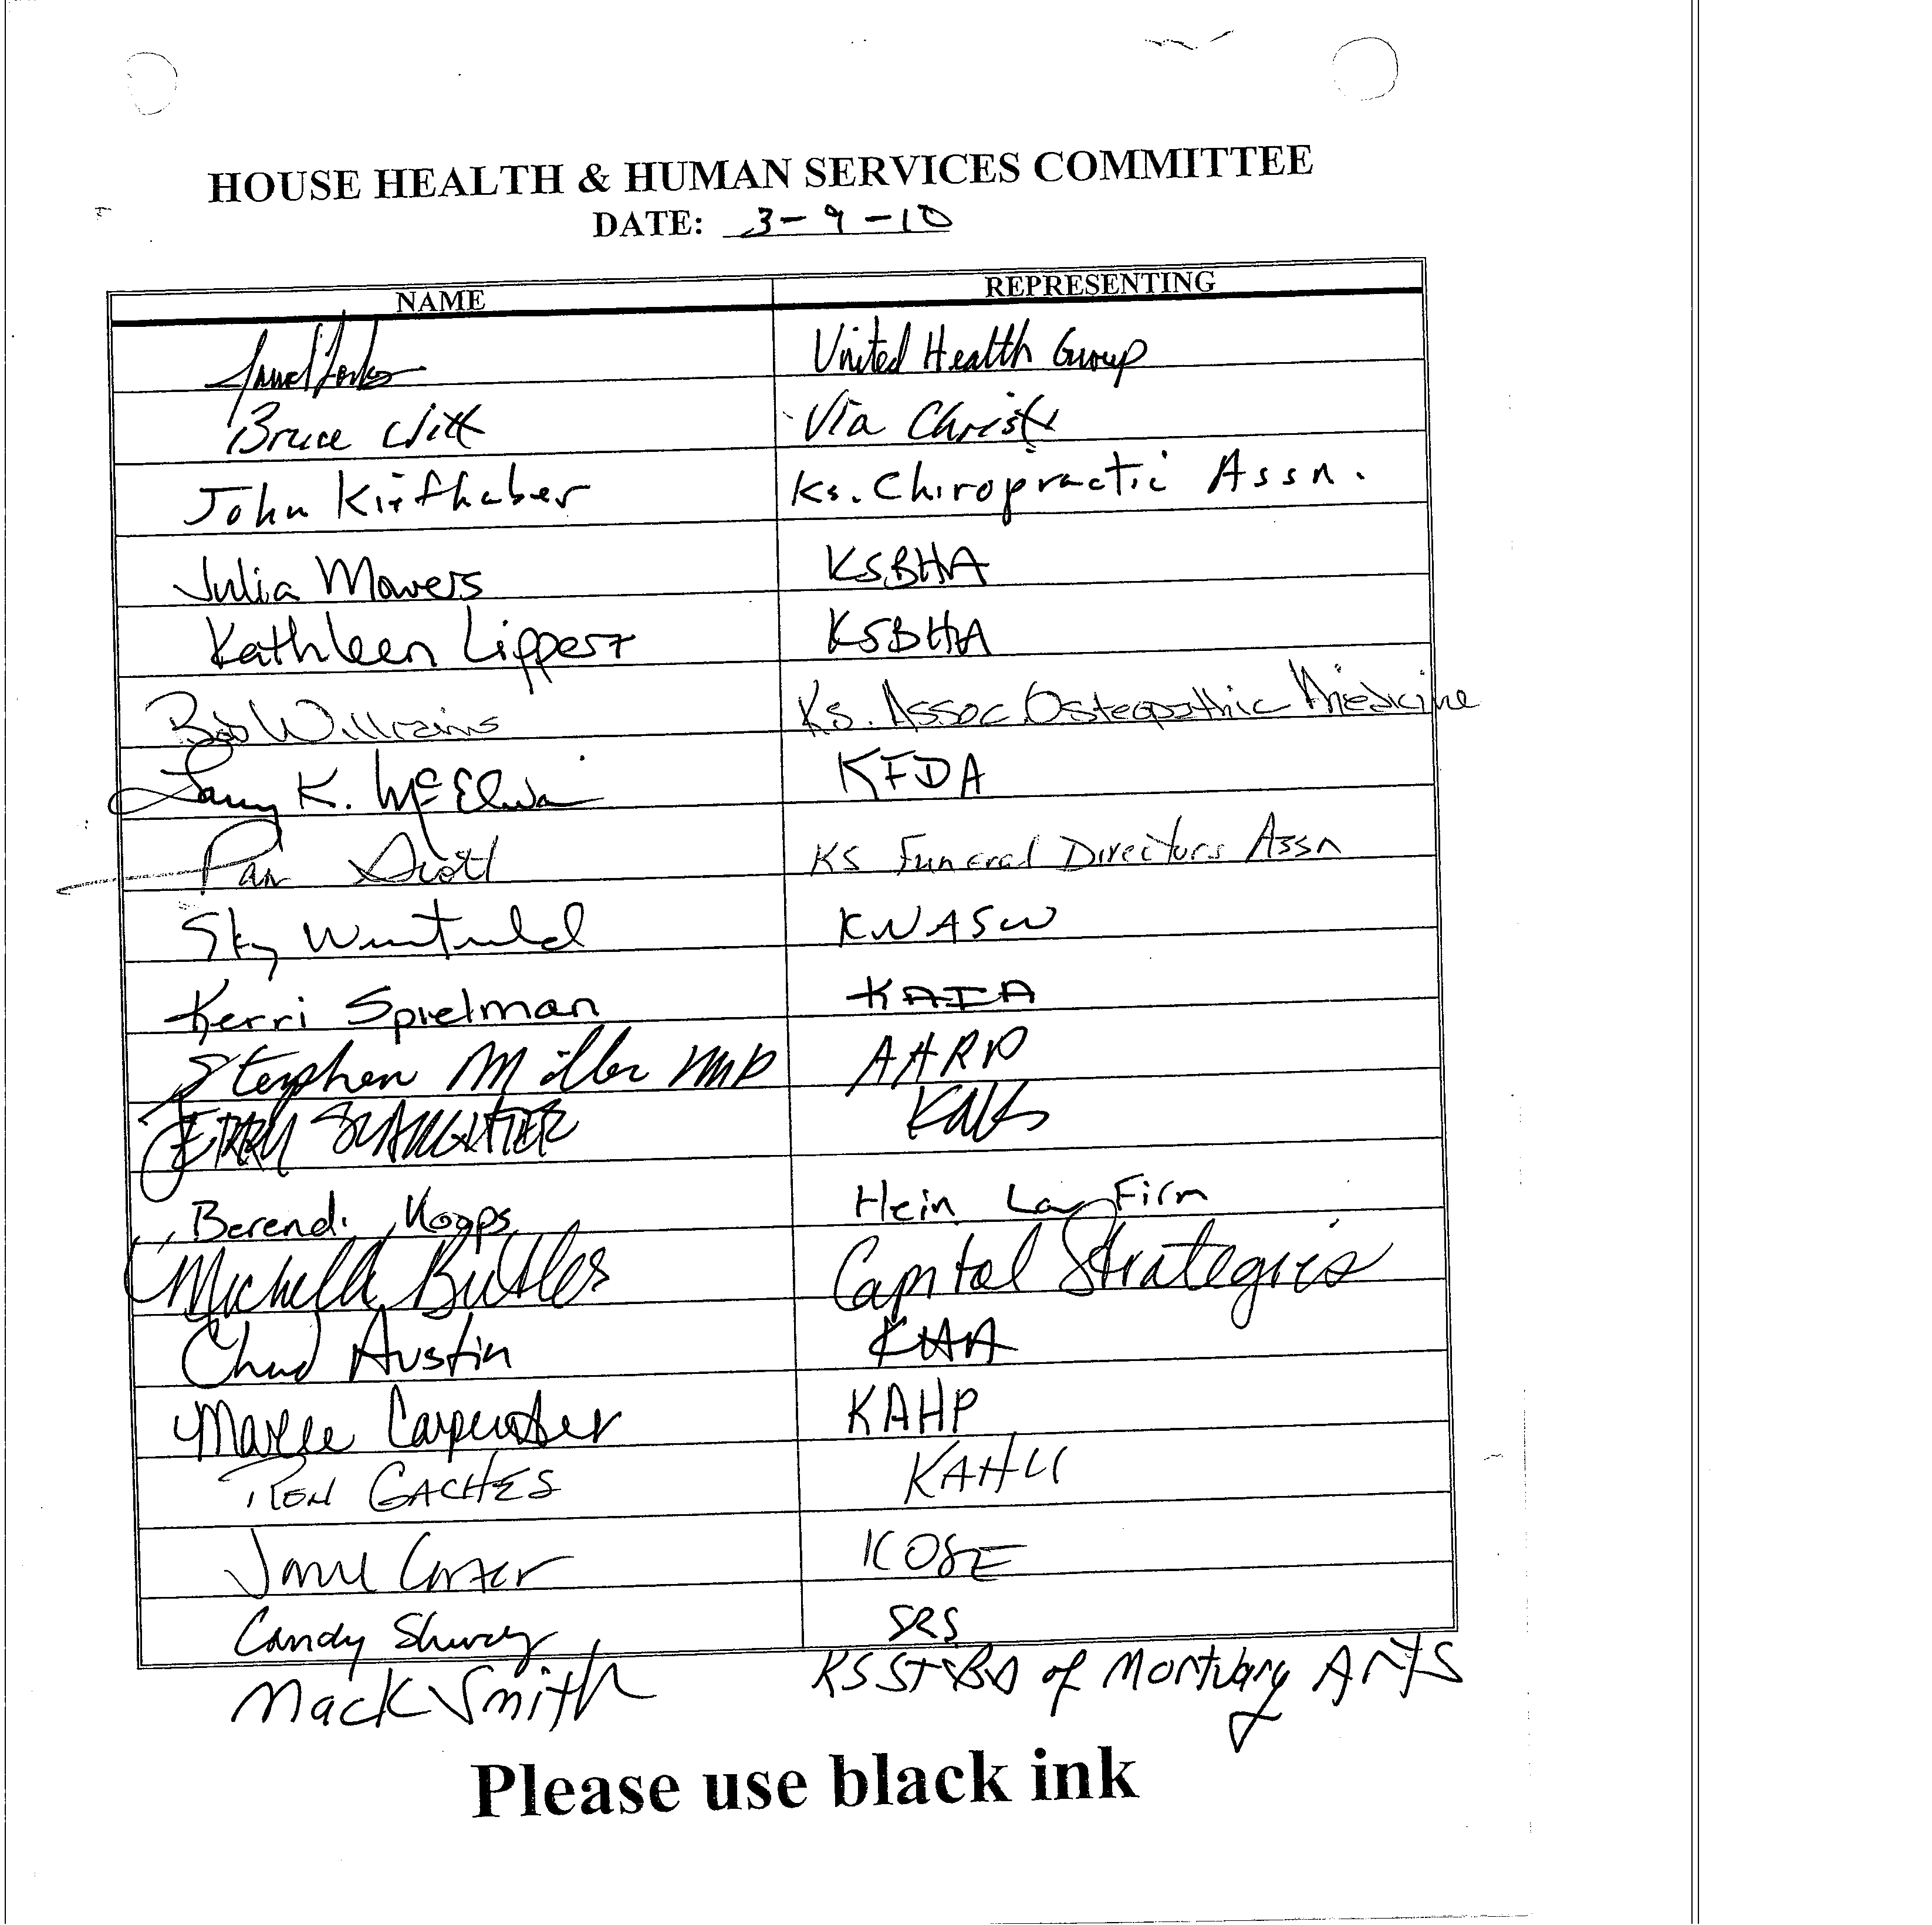 HOUSE HEALTH & HUMAN SERVICES COMMITTEE
DATE: 3-9-10
NAME REPRESENTING
United Health Group
Bruce Witt Via Christi
John Kiefhaber Ks. Chiropractic Assn.
Julia Mowers KSBHA
Kathleen Lippert KSBHA
Bob Williams Ks. Assoc. Osteopathic Medicine
Larry K. McElwain KFDA
Pam Scott KS Funeral Directors Assn
Sky Westerlund KNASW
Kerri Spielman KAIA
Stephen Miller AARP
JERRY SLAUGHTER KMS
Berend Koops Hein Law Firm
Michelle Butler Capitol Strategies
Chad Austin KHA
Marlee Carpenter KAHP
RON GACHES KAHU
Jane Carter KOSE
Candy Shively SRS
Mack Smith KS St Bd of Mortuary Arts
Please use black ink